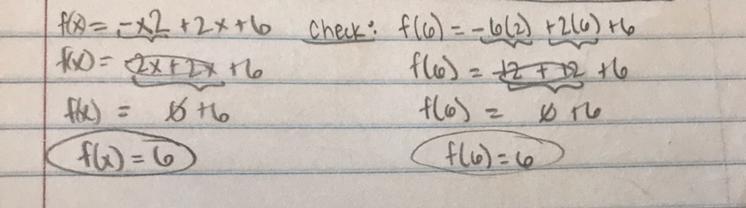 f(x) = -x2 + 2x + 6
f(x) = -2x + 2x + 6
f(x) = 0 + 6
f(x) = 6
Check: f(6) = -6(2) + 2(6) + 6
f(6) = -12 + 12 + 6
f(6) = 0 + 6
f(6) = 6